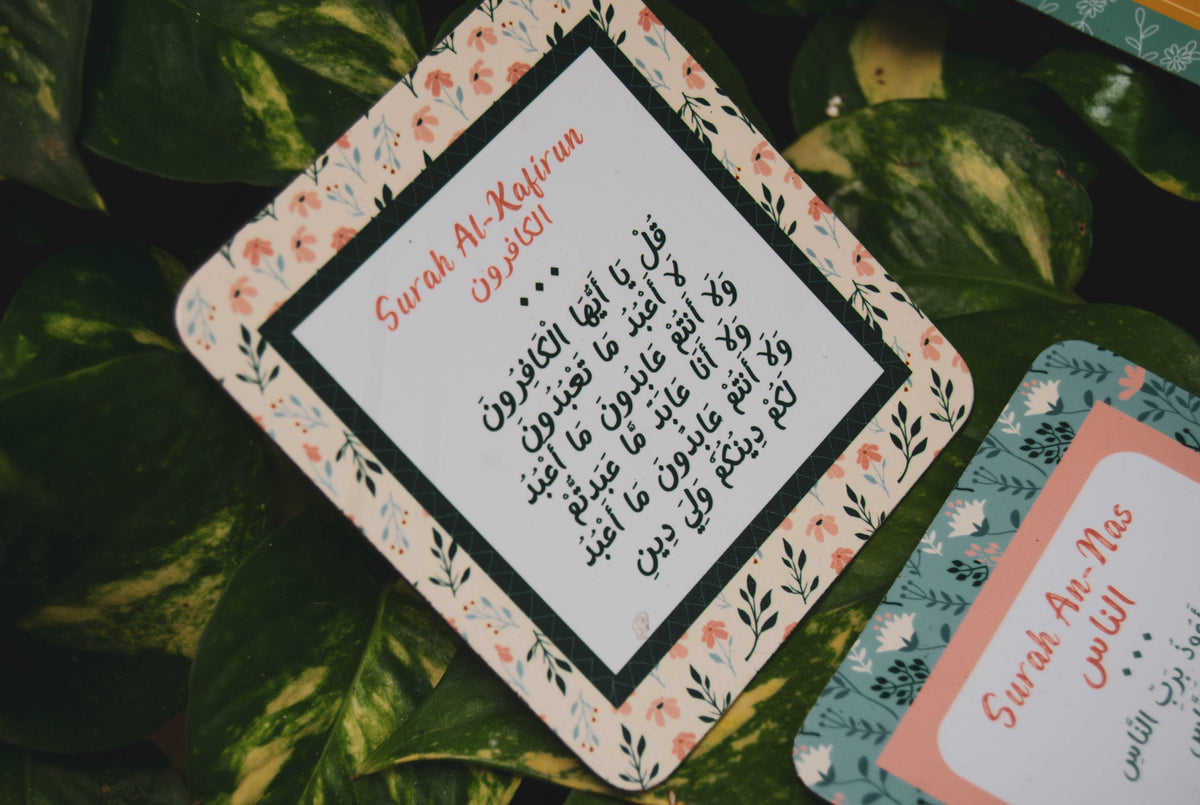 Surah Al-Kafirun
الكافرون
...
قُلْ يَا أَيُّهَا الْكَافِرُونَ
لَا أَعْبُدُ مَا تَعْبُدُونَ
وَلَا أَنتُمْ عَابِدُونَ مَا أَعْبُدُ
وَلَا أَنَا عَابِدٌ مَّا عَبَدتُّمْ
وَلَا أَنتُمْ عَابِدُونَ مَا أَعْبُدُ
لَكُمْ دِينُكُمْ وَلِيَ دِينِ
Surah An-Nas
الناس
...
بِرَبِّ النَّاسِ